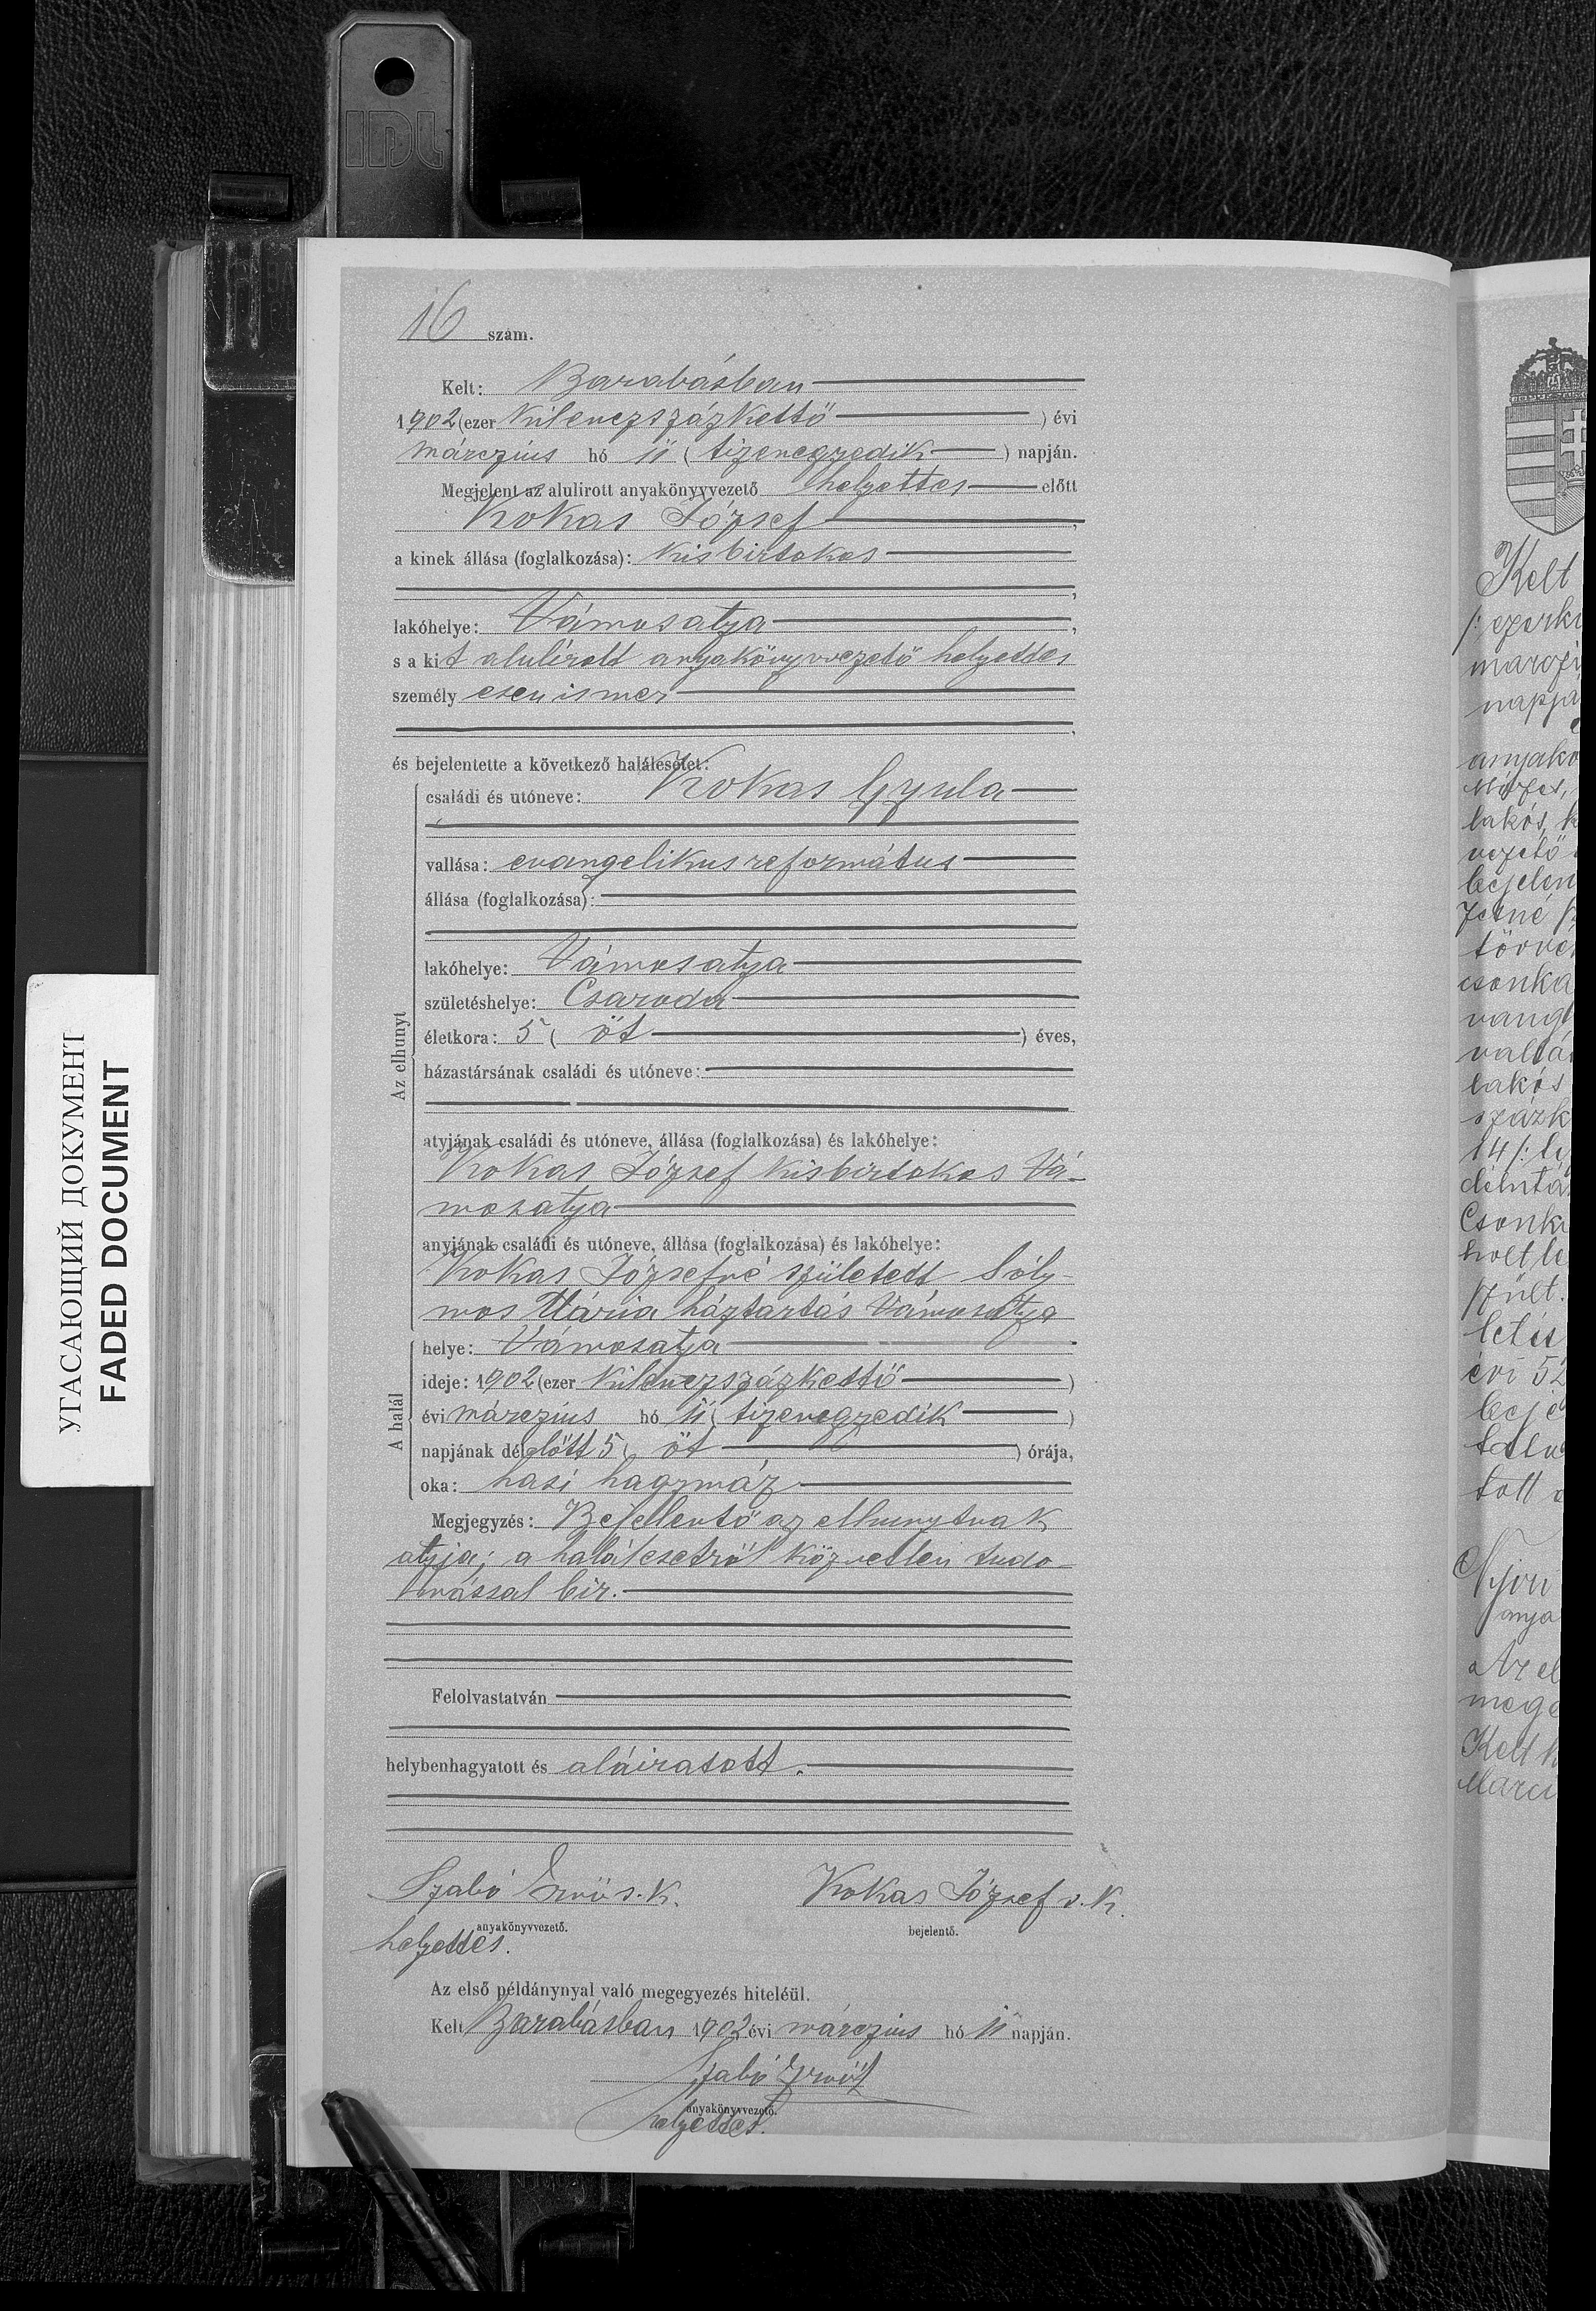 IDL
16 szám.
Kelt: Barabásban
1902 (ezer kilenczszázkettő ) évi
márczius hó 11 ( tizenegyedik ) napján.
Megjelent az alulirott anyakönyvvezető helyettes előtt
Kokas József ,
a kinek állása (foglalkozása): kisbirtokos
,
lakóhelye: Vámosatya ,
s a kit alulírott anyakönyvvezető helyettes
személyesen ismer
,
és bejelentette a következő halálesetet:
családi és utóneve: Kokas Gyula
vallása: evangelikus református
állása (foglalkozása):
lakóhelye: Vámosatya
születéshelye: Csaroda
életkora: 5 ( öt ) éves,
házastársának családi és utóneve:
Az elhunyt
atyjának családi és utóneve, állása (foglalkozása) és lakóhelye:
Kokas József kisbirtokos Vá-
mosatya
anyjának családi és utóneve, állása (foglalkozása) és lakóhelye:
Kokas Józsefné született Sóly-
mos Mária háztartás Vámosatya
helye: Vámosatya
ideje: 1902 (ezer kilenczszázkettő )
évi márczius hó 11 ( tizenegyedik )
A halál
napjának délelőtt 5 ( öt ) órája,
oka: hasi hagymáz
Megjegyzés: Bejelentő az elhunytnak
atyja; a halálesetről közvetlen tudo-
mással bir.
Felolvastatván
helybenhagyatott és aláiratott.
Szabó Ernő s. k. Kokas József s. k.
anyakönyvvezető. bejelentő.
helyettes.
Az első példánynyal való megegyezés hiteléül.
Kelt Barabásban 1902 évi márczius hó 11 napján.
Szabó Ernő
anyakönyvvezető.
helyettes.
УГАСАЮЩИЙ ДОКУМЕНТ
FADED DOCUMENT
Kelt
napjá
anyakö
lakós, k
vezető
bejelen
törvé
csonka
vang
vallá
lakós
százk
14 /:
Csonk
évi 52
tott
anya
Az el
mege
Kelt